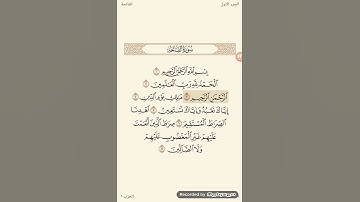 الجزء الأول
الفاتحة
سورة الفاتحة
بسم الله الرحمن الرحيم ١
الحمد لله رب العالمين ٢
الرحمن الرحيم ٣ مالك يوم الدين ٤
إياك نعبد وإياك نستعين ٥ اهدنا
الصراط المستقيم ٦ صراط الذين أنعمت
عليهم غير المغضوب عليهم
ولا الضالين ٧
الحزب ١
Recorded by